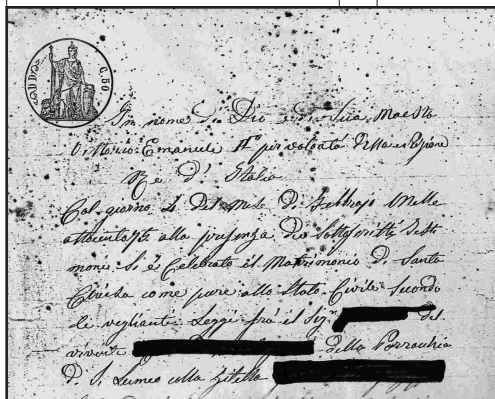 C. 50
In nome di Dio e di Sua Maestà
Vittorio Emanuele IIº per volontà della Nazione
Re d' Italia
Col giorno 4 del Mese di Febbrajo Mille
alla presenza dei sottoscritti Testi
moni Si è Celebrato il Matrimonio di Santa
Chiesa come pure allo Stato Civile Secondo
le veglianti Leggi frà il Sigʳ del
vivente della Parrochia
D. S. colla Zitella